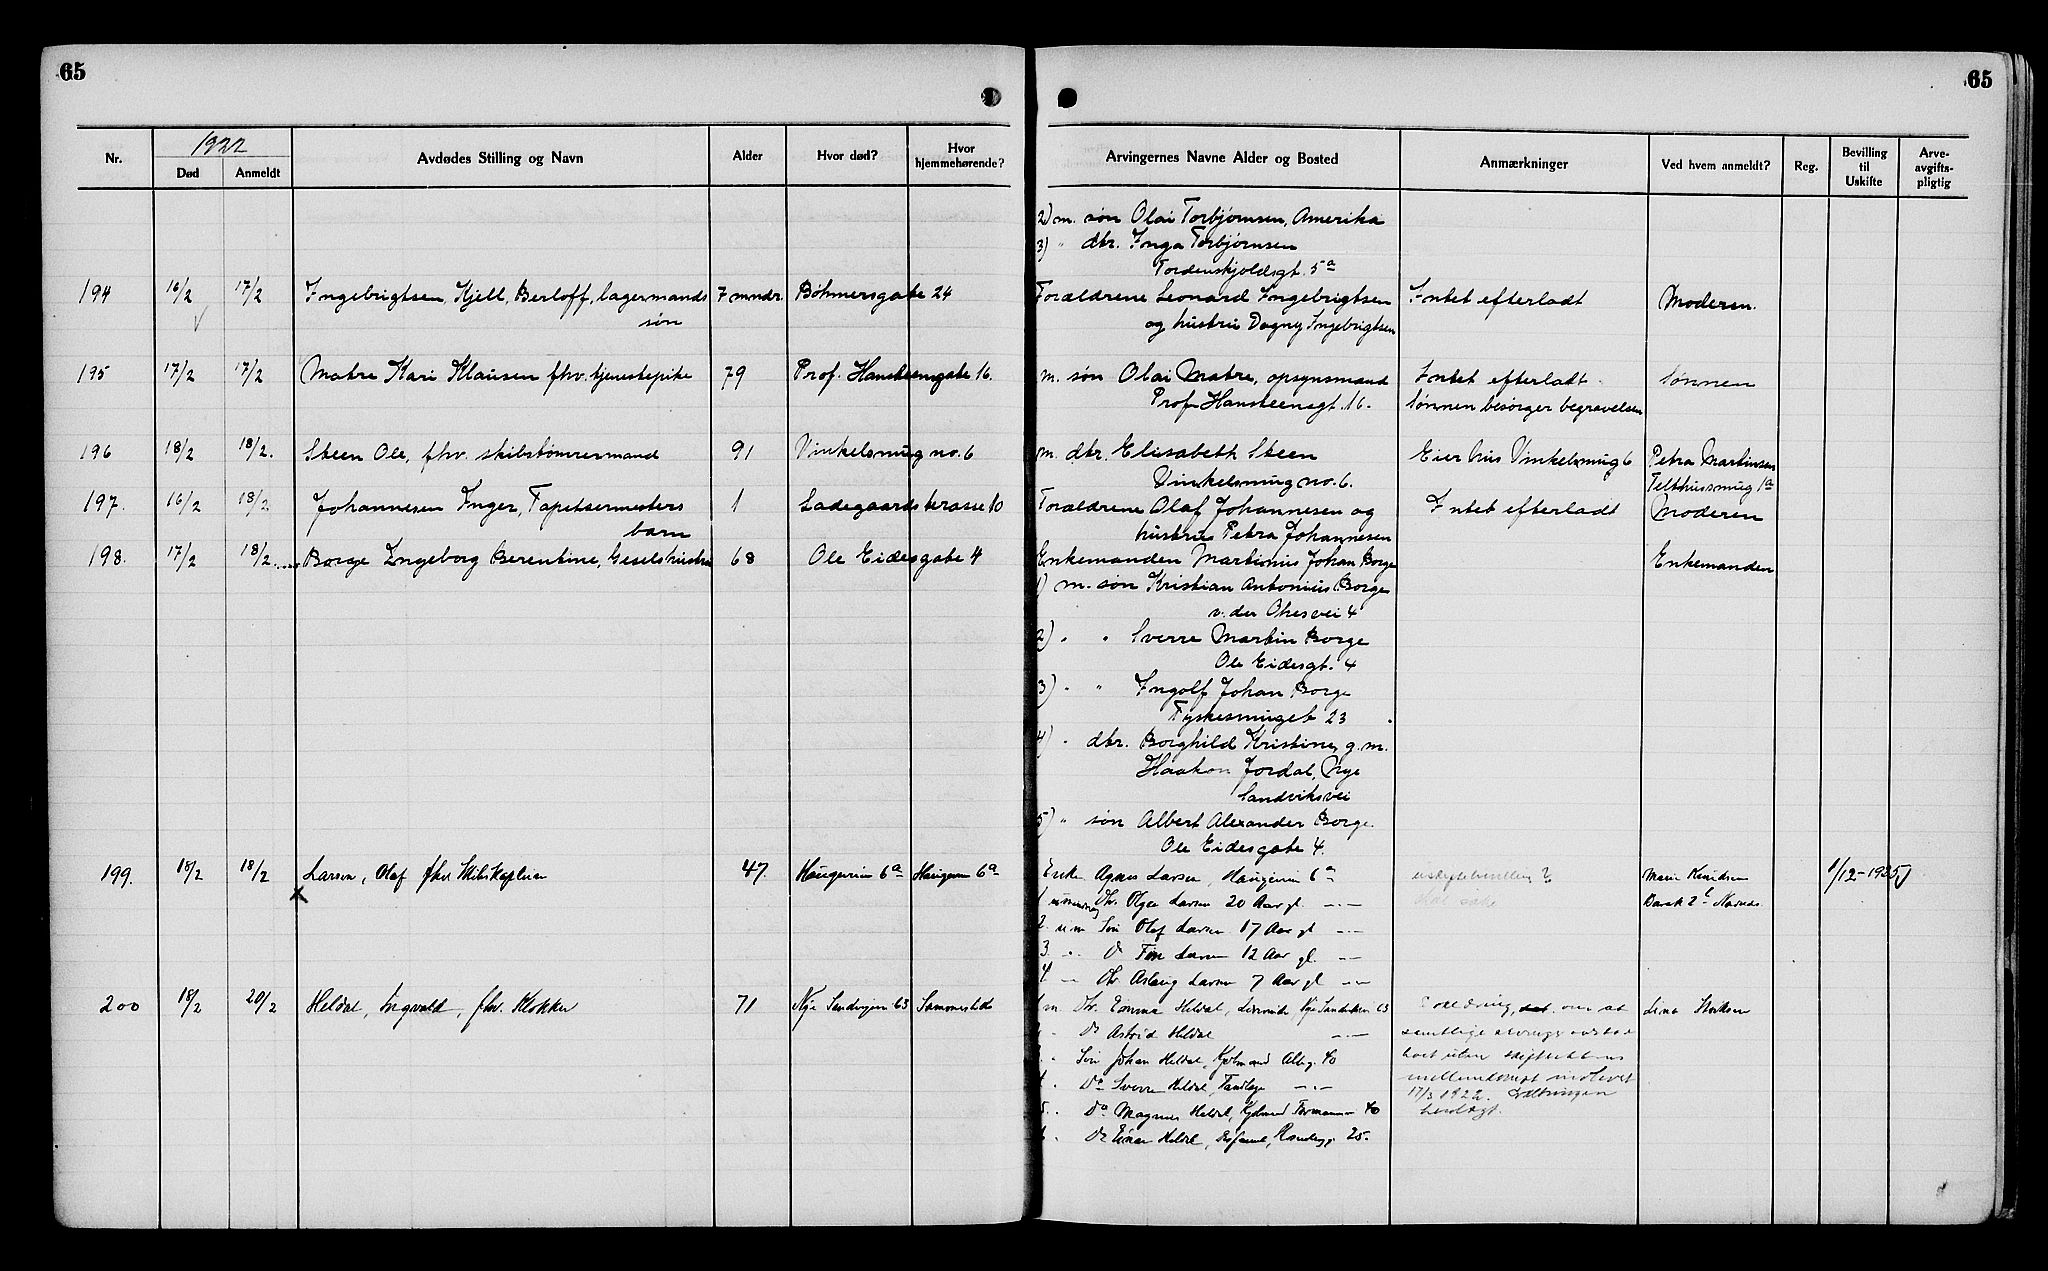 65
65
1922
Nr. Død Anmeldt Avdødes Stilling og Navn Alder Hvor død? Hvor hjemmehørende?
Arvingernes Navne Alder og Bosted Anmærkninger Ved hvem anmeldt? Reg. Bevilling til Uskifte Arve-avgifts-pligtig
2) m. søn Olai Torbjørnsen, Amerika
3) " dtr. Inga Torbjørnsen
Tordenskjoldsgt. 5a
194 16/2 17/2 Ingebrigtsen, Kjell, Berloff, lagermands 7 mndr. Bøhmersgate 24 Forældrene Leonard Ingebrigtsen Intet efterladt Moderen.
søn og hustru Dagny Ingebrigtsen
195 17/2 17/2 Matre Kari Klausen fhv. tjenestepike 79 Prof. Hansteensgate 16. m. søn Olai Matre, opsynsmand Intet efterladt. Sønnen
Prof. Hansteensgt. 16. Sønnen besørger begravelsen
196 18/2 18/2. Steen Ole, fhv. skibstømmermand 91 Vinkelsmug no. 6 m. dtr. Elisabeth Steen Eier hus Vinkelsmug 6 Petra Martinsen
Vinkelsmug no. 6. Telthussmug 1a
197. 16/2 18/2 Johannesen Inger, Tapetsermesters 1 Ladegaardsterasse 10 Forældrene Olaf Johannesen og Intet efterladt Moderen
barn hustru Petra Johannesen
198. 17/2 18/2 Borge Ingeborg Berentine, Geselshustru 68 Ole Eidesgate 4 Enkemanden Martinus Johan Borge Enkemanden
1) m. søn Kristian Antonius Borge
v. der Ohesvei 4
2) " " Sverre Martin Borge
Ole Eidesgt. 4
3) " " Ingolf Johan Borge
Tyskesmuget 23
4) " dtr. Borghild Kristine, g. m.
Haakon Jordal, Nye
Sandviksvei
5) " søn Albert Alexander Borge
Ole Eidesgate 4.
199. 18/2 18/2 Larsen, Olaf fhv Skibskaptein 47. Haugevein 6a Haugevein 6a Enke Agnes Larsen, Haugevein 6a uskiftebevilling ? Marie Knudsen 1/12-1925
1 Dtr. Olga Larsen 20 Aar gl. —"— skal søke
2. um Søn Olaf Larsen 17 Aar gl —"—
3. " Do Finn Larsen 12 Aar gl. —"—
4. — Dtr Aslaug Larsen 7 Aar gl —"—
200 18/2 20/2 Heldal, Ingvald, fhv. Klokker 71 Nye Sandvigsvei 63 Sammesteds 1 m. Dtr. Emma Heldal, Nye Sandviksv. 63
Do Astrid Heldal —"—
Søn Johan Heldal, Kjøbmand 40
Do Sverre Heldal, Tandlæge —"—
17/3 1922.
Do Magnus Heldal, Kjøbmand 40
Do Einar Heldal, 25.